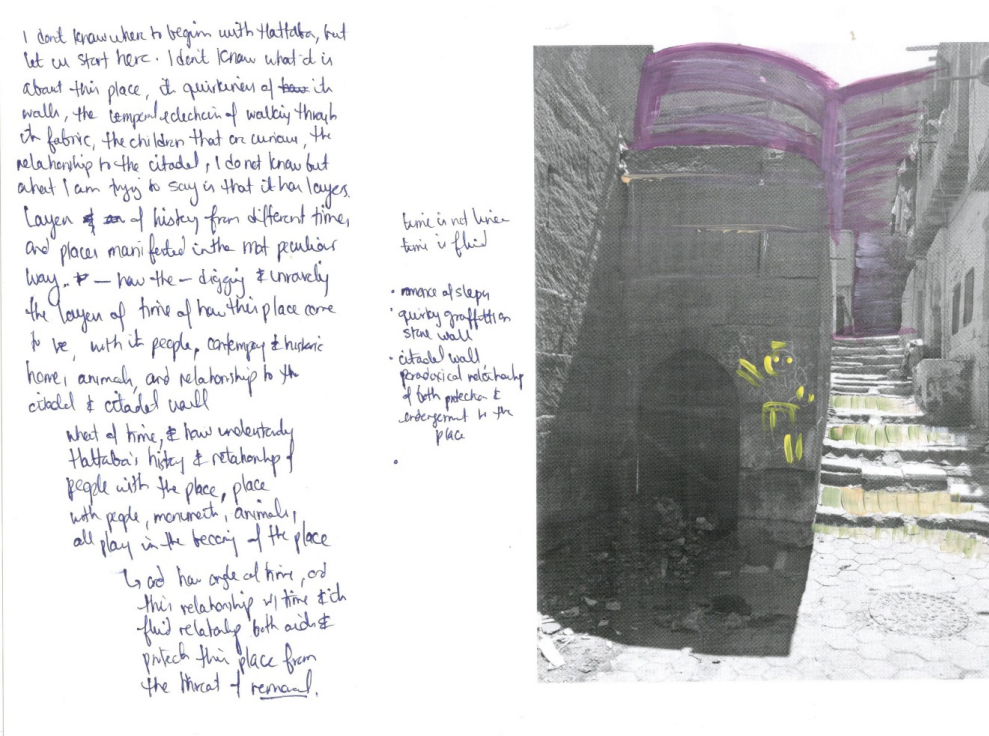 I dont know where to begin with Hattaba, but
let us start here. I don't know what it is
about this place, its quirkiness of its
walls, the temporal of walking through
its fabric, the children that are curious, the
relationship to the citadel, I do not know but
what I am trying to say is that it has layers.
Layers of history from different times,
and places manifested in the most peculiar
way. — how the — digging & unraveling
the layers of time of how this place came
to be, with its people, contempory & historic
homes, animals, and relationship to the
citadel & citadel wall
what of time, & how understanding
Hattaba's history & relationship of
people with the place, place
with people, monuments, animals,
all play in the becoming of the place
↳ and how angle of time, and
this relationship w/ time & its
fluid relationship both aids &
protects this place from
the threat of removal.
time is not linear
time is fluid
• romance of steps
• quirky graffiti on
stone wall
• citadel wall
paradoxical relationship
of both protection &
endangerment to the
place
•